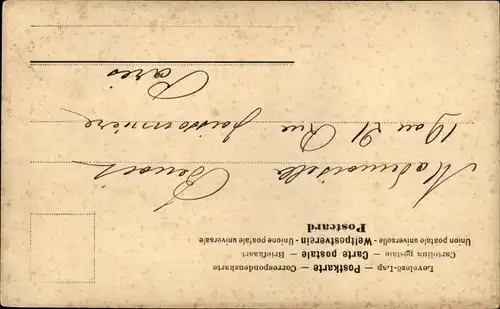 Levelező-Lap — Postkarte — Correspondenzkarte
Cartolina postale — Carte postale — Briefkaart
Union postale universelle - Weltpostverein - Unione postale universale
Postcard
Mademoiselle Benoit
19 au 21 Rue
Paris